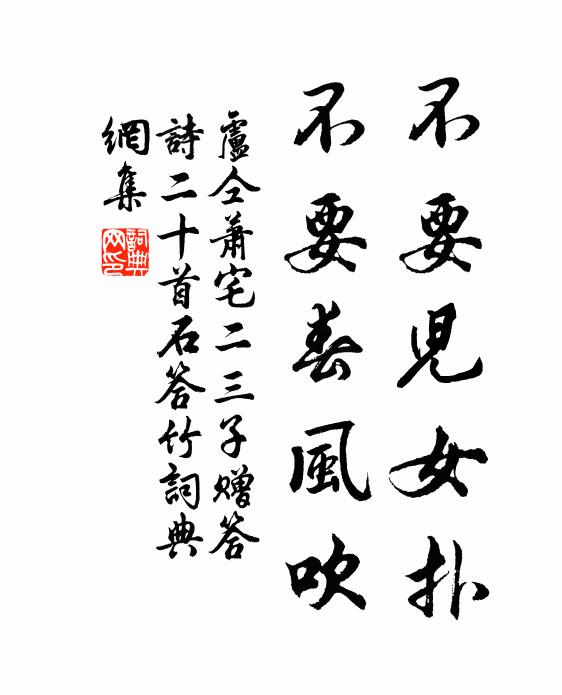 不要兒女扑
不要春風吹
盧仝蕭宅二三子贈答
詩二十首石答竹詞典
網集
詞典網印